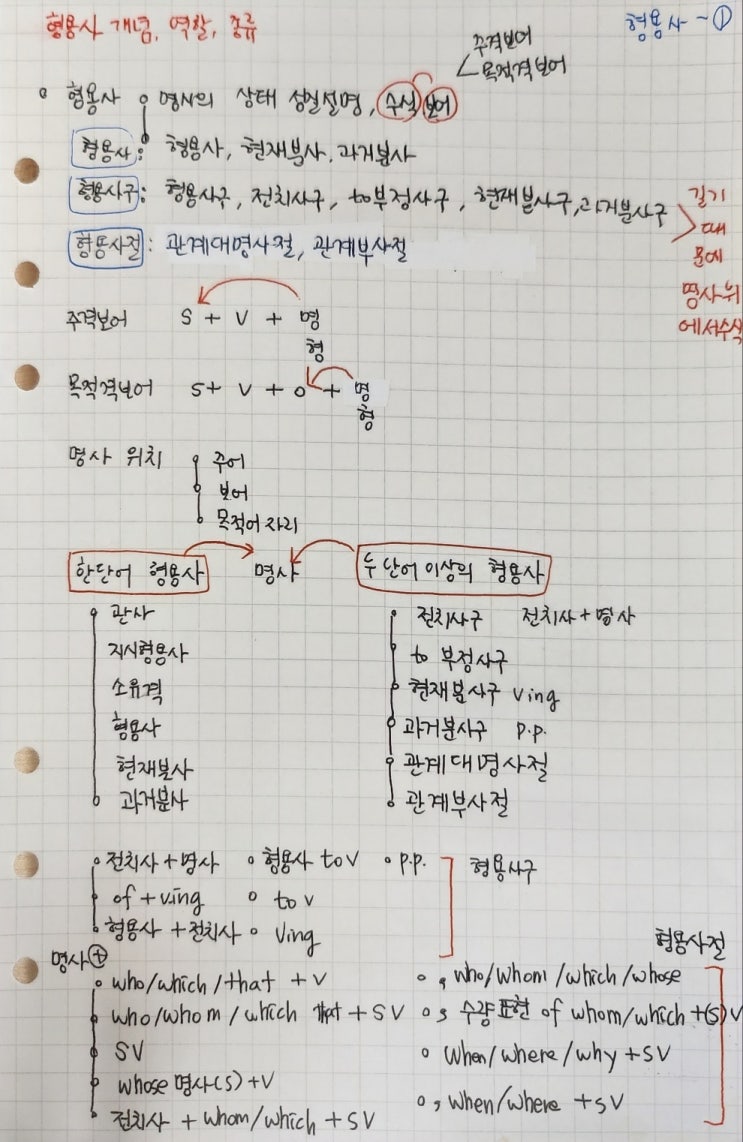 형용사 개념, 역할, 종류
형용사 - ①
주격보어
목적격보어
형용사 명사의 상태 성질설명, 수식 보어
형용사: 형용사, 현재분사, 과거분사
형용사구: 형용사구, 전치사구, to부정사구, 현재분사구, 과거분사구
형용사절: 관계대명사절, 관계부사절
길기
때
문에
명사뒤
에서수식
주격보어 S + V + 명
형
목적격보어 S + V + O + 명
형
명사 위치 주어
보어
목적어 자리
한단어 형용사 명사 두 단어 이상의 형용사
관사
지시형용사
소유격
형용사
현재분사
과거분사
전치사구 전치사+명사
to 부정사구
현재분사구 Ving
과거분사구 p.p.
관계대명사절
관계부사절
전치사+명사 형용사 to V p.p. 형용사구
of + Ving to V
형용사 + 전치사 Ving
명사 + 형용사절
who/which/that + V , who/whom/which/whose
who/whom/which that + SV , 수량표현 of whom/which +(S)V
SV When/where/why +SV
whose 명사(S)+V , when/where +SV
전치사 + whom/which + SV